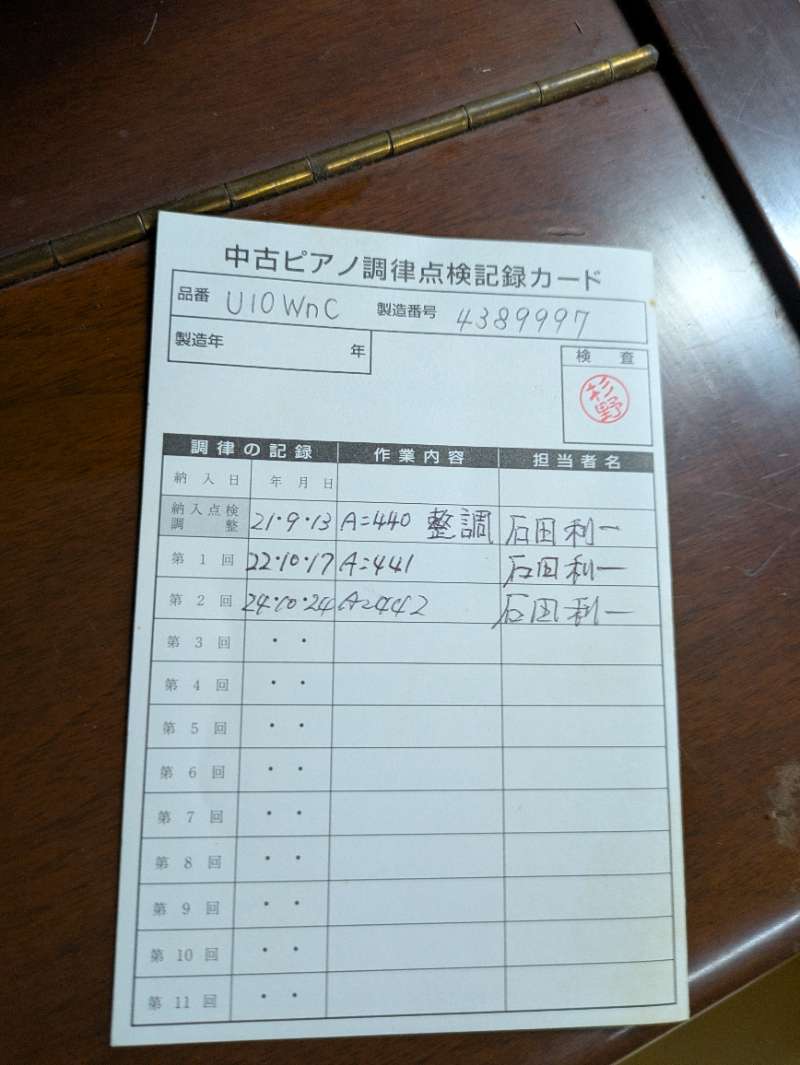 中古ピアノ調律点検記録カード
品番 U10WnC 製造番号 4389997
製造年 年
検査
杉野
調律の記録 作業内容 担当者名
納入日 年 月 日
納入点検調整 21・9・13 A=440 整調 石田利一
第1回 22・10・17 A=441 石田利一
第2回 24・10・24 A=442 石田利一
第3回 ・ ・
第4回 ・ ・
第5回 ・ ・
第6回 ・ ・
第7回 ・ ・
第8回 ・ ・
第9回 ・ ・
第10回 ・ ・
第11回 ・ ・